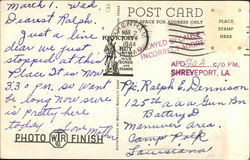 March 1. Wed.
Dearest Ralph.
Just a line
dear we just
stopped at this
Place. It is now
3:30 P.M. so won't
be long now sure
is pretty here
today. Love Mother
PHOTO FINISH
POST CARD
SPACE FOR ADDRESS ONLY
MAR 2
1944
BUY WAR
DELAYED
INCORRECT
PLACE
STAMP
HERE
APO 402 c/o P.M.
SHREVEPORT, LA.
Pfc. Ralph E. Dennison
125th a.a.a. Gun Bn
Battery D
Maneuver area
Camp Polk
Louisiana